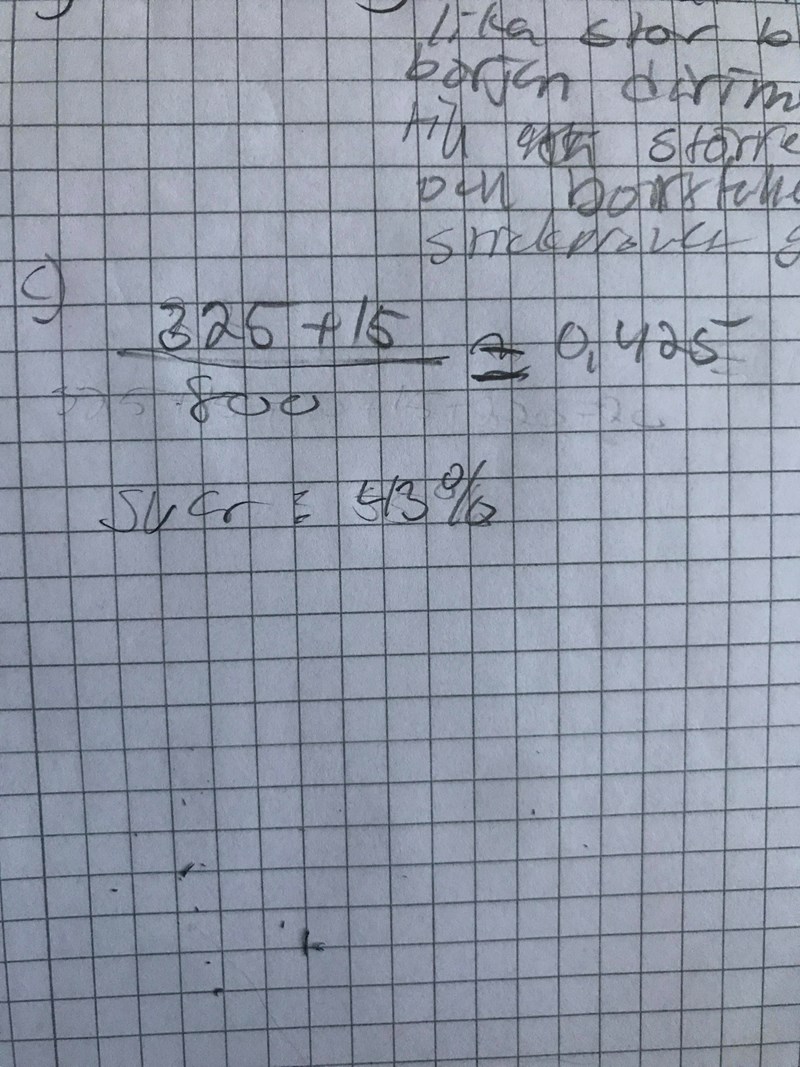 lika stor b
början därim
till större
och bortfall
stickprovet
c)
325 + 15
800
≈ 0,425
Svar : 513 %